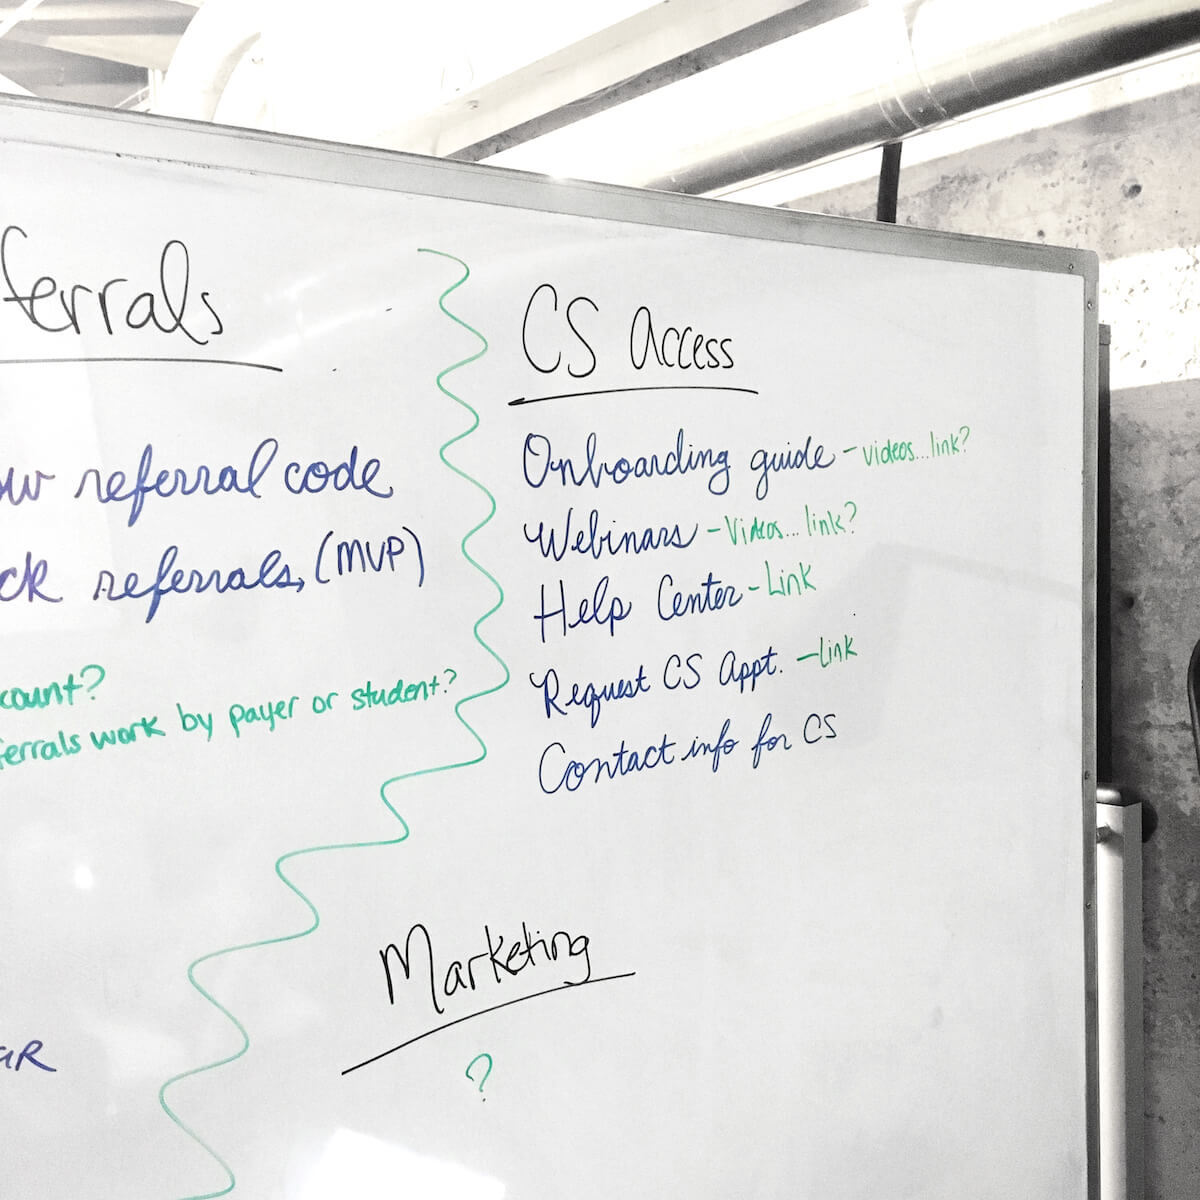 ferrals
ow referral code
ck referrals, (MVP)
count?
ferrals work by payer or student?
CS Access
Onboarding guide - videos...link?
Webinars - Videos... link?
Help Center - Link
Request CS Appt. - Link
Contact info for CS
Marketing
?